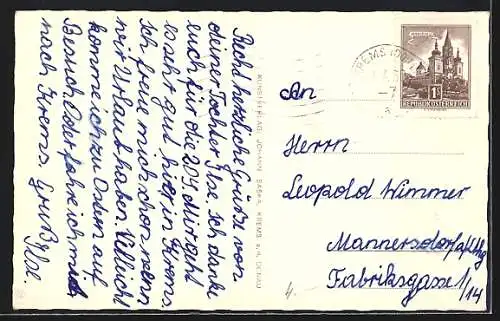 Recht herzliche Grüße von
deiner Tochter Ilse. Ich danke
euch für die 20 S. Mir geht
es sehr gut hier in Krems.
Ich freue mich schon wenn
wir Urlaub haben. Vielleicht
komme ich zu Ostern auf
Besuch. Oder fahre ich mit
nach Krems. Gruß Ilse.
KUNSTVERLAG JOHANN BASKA, KREMS a. d. DONAU
KREMS
MARIAZELL
1S
REPUBLIK ÖSTERREICH
An
Herrn
Leopold Wimmer
Mannersdorf a/Lthg
Fabriksgasse 1/14
4.